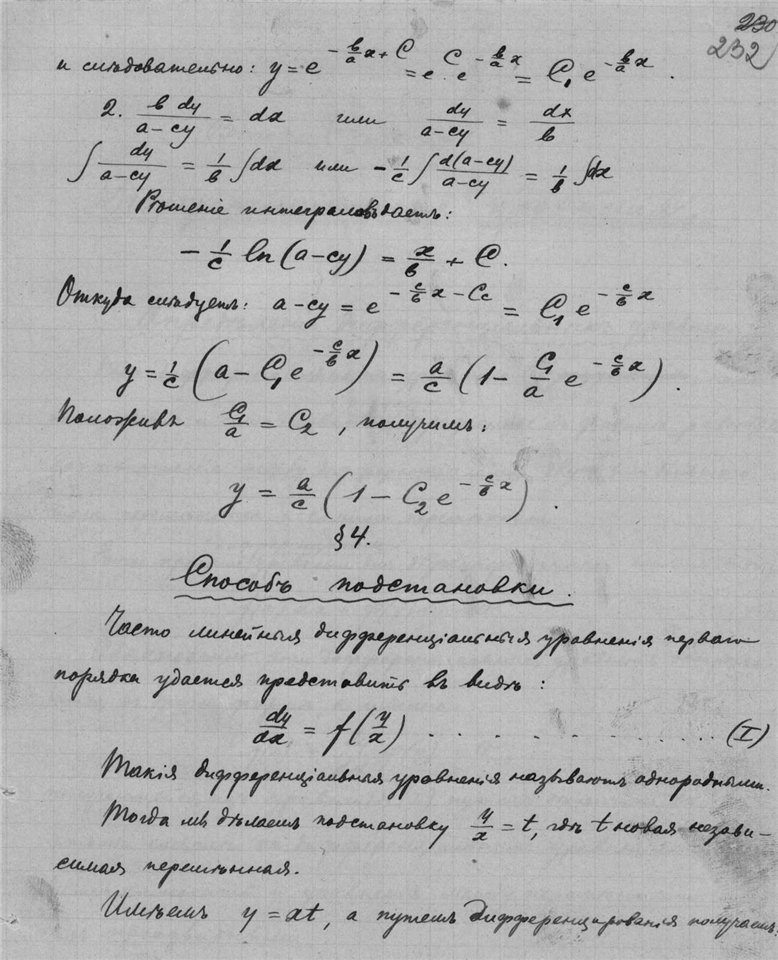 230
232
и слѣдовательно: y = e^{-\frac{b}{a}x + C} = e^{C} · e^{-\frac{b}{a}x} = C₁ e^{-\frac{b}{a}x}.
2. \frac{b dy}{a-cy} = dx или \frac{dy}{a-cy} = \frac{dx}{b}
∫\frac{dy}{a-cy} = \frac{1}{b}∫dx или -\frac{1}{c}∫\frac{d(a-cy)}{a-cy} = \frac{1}{b}∫dx
Рѣшеніе интеграловъ даетъ:
-\frac{1}{c} ln(a-cy) = \frac{x}{b} + C.
Откуда слѣдуетъ: a-cy = e^{-\frac{c}{b}x - Cc} = C₁ e^{-\frac{c}{b}x}
y = \frac{1}{c}(a - C₁e^{-\frac{c}{b}x}) = \frac{a}{c}(1 - \frac{C₁}{a} e^{-\frac{c}{b}x}).
Положивъ \frac{C₁}{a} = C₂, получимъ:
y = \frac{a}{c}(1 - C₂e^{-\frac{c}{b}x}).
§4.
Способъ подстановки.
Часто линейныя дифференціальныя уравненія перваго
порядка удается представить въ видѣ:
\frac{dy}{dx} = f(\frac{y}{x}) . . . . . . . . . . . . . . (I)
Такія дифференціальныя уравненія называютъ однородными.
Тогда мы дѣлаемъ подстановку \frac{y}{x} = t, гдѣ t новая незави-
симая перемѣнная.
Имѣемъ y = xt, а путемъ дифференцированія получаемъ: